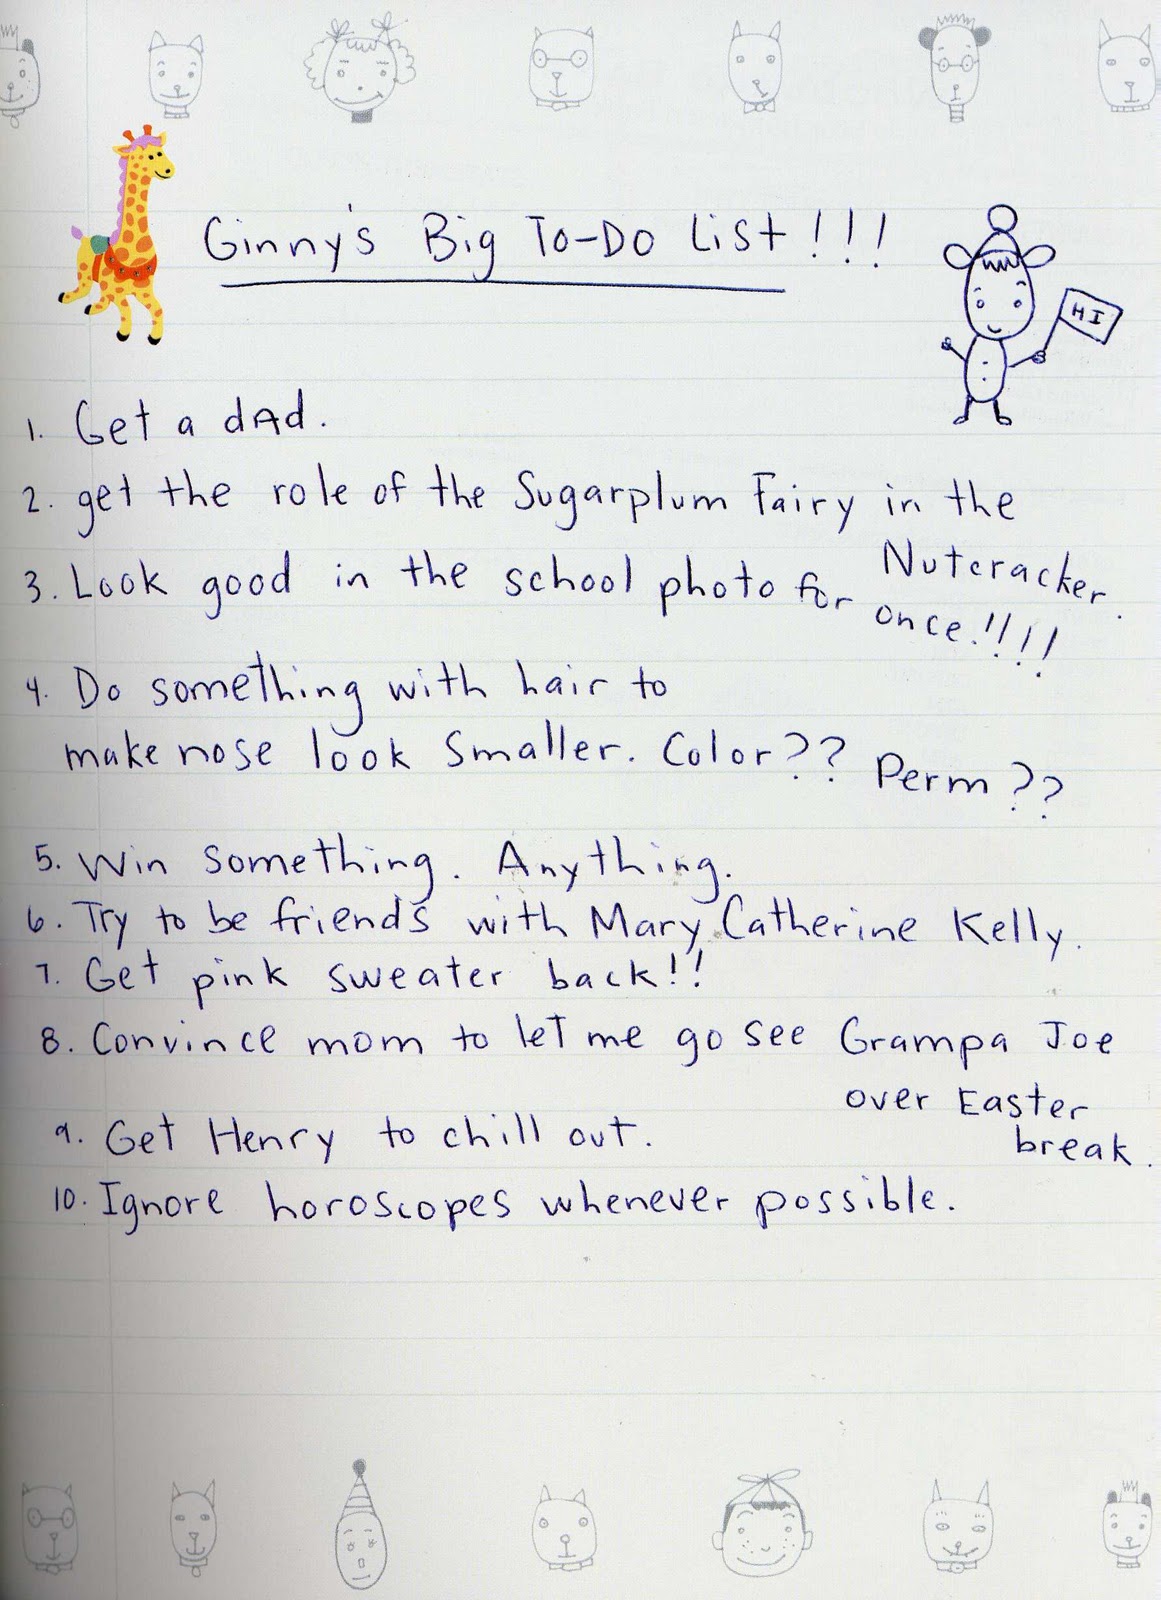 Ginny's Big To-Do List!!!
HI
1. Get a dAd.
2. get the role of the Sugarplum Fairy in the
Nutcracker.
3. Look good in the school photo for
once!!!!
4. Do something with hair to
make nose look smaller. Color?? Perm??
5. Win something. Anything.
6. Try to be friends with Mary Catherine Kelly.
7. Get pink sweater back!!
8. Convince mom to let me go see Grampa Joe
over Easter
break.
9. Get Henry to chill out.
10. Ignore horoscopes whenever possible.